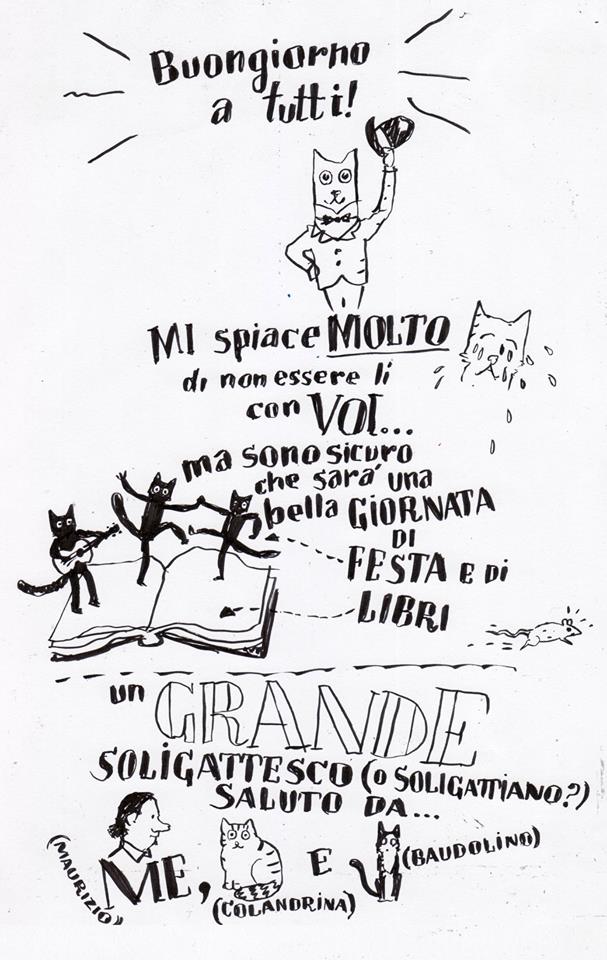 Buongiorno
a tutti!
MI spiace MOLTO
di non essere li
con VOI...
ma sono sicuro
che sarà una
bella GIORNATA
DI
FESTA E DI
LIBRI
un GRANDE
SOLIGATTESCO (O SOLIGATTIANO?)
SALUTO DA...
(MAURIZIO) ME, (COLANDRINA) E (BAUDOLINO)